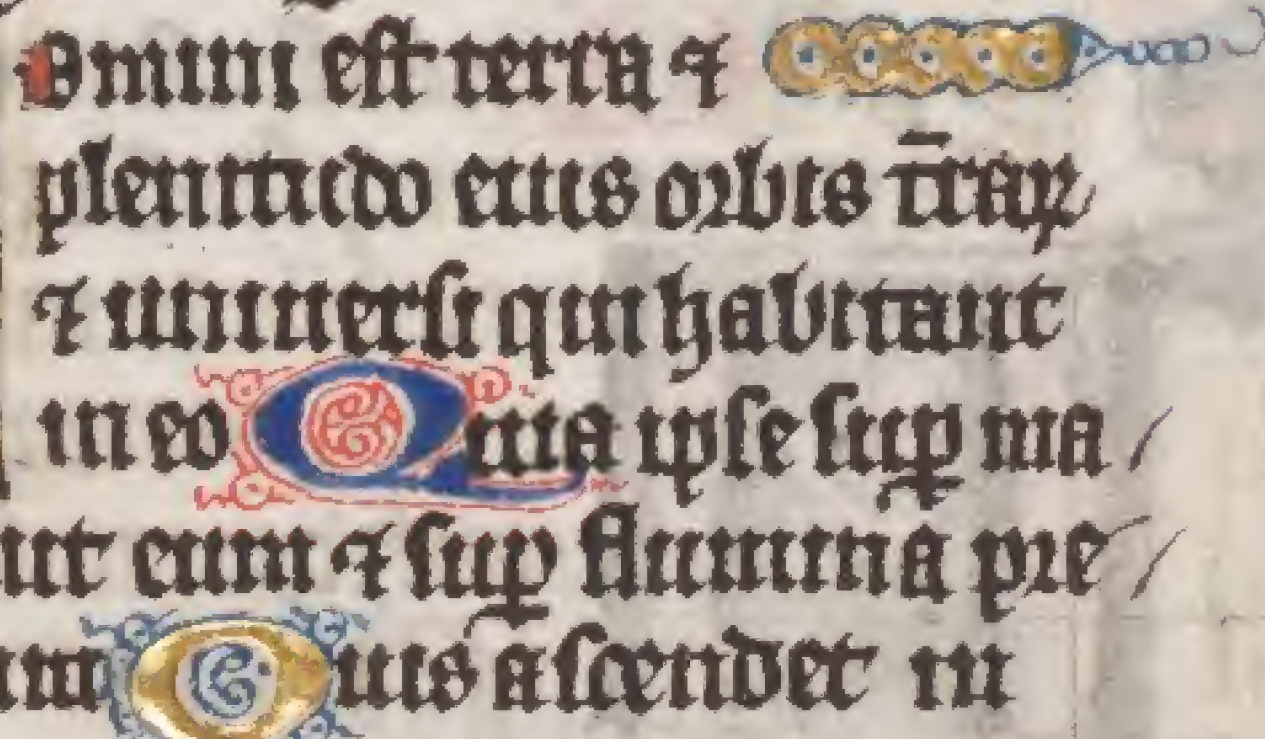 Omini est terra ⁊
plenitudo eius orbis t̄raꝝ
⁊ uniuersi qui habitant
in eo Quia ipse suꝑ ma
uit eum ⁊ suꝑ flumina pre
um Quis ascendet in